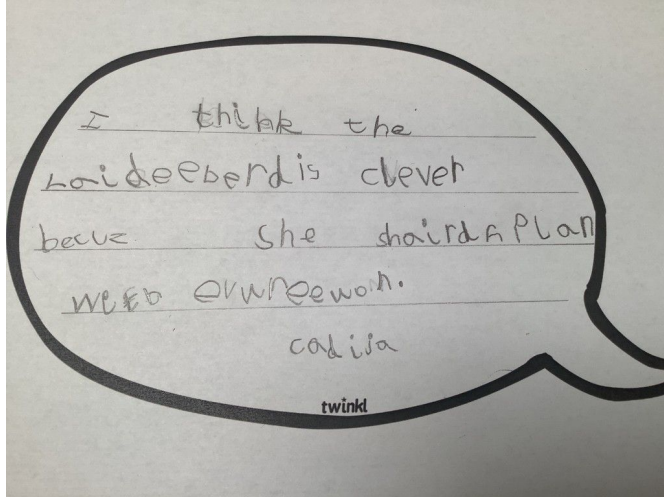 I think the
Laideeberd is clever
becuz she shaird a Plan
weeb evwreewon.
twinkl